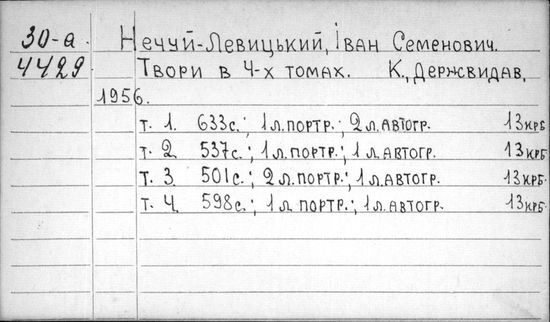 30-а. Нечуй-Левицький, Іван Семенович.
4429 Твори в 4-х томах. К., Держвидав,
1956.
т. 1. 633с.; 1 л. портр.; 2 л. автогр. 13 крб
т. 2 537с.; 1 л. портр.; 1 л. автогр. 13 крб.
т. 3 501с.; 2 л. портр.; 1 л. автогр. 13 крб.
т. 4 598с.; 1 л. портр.; 1 л. автогр. 13 крб